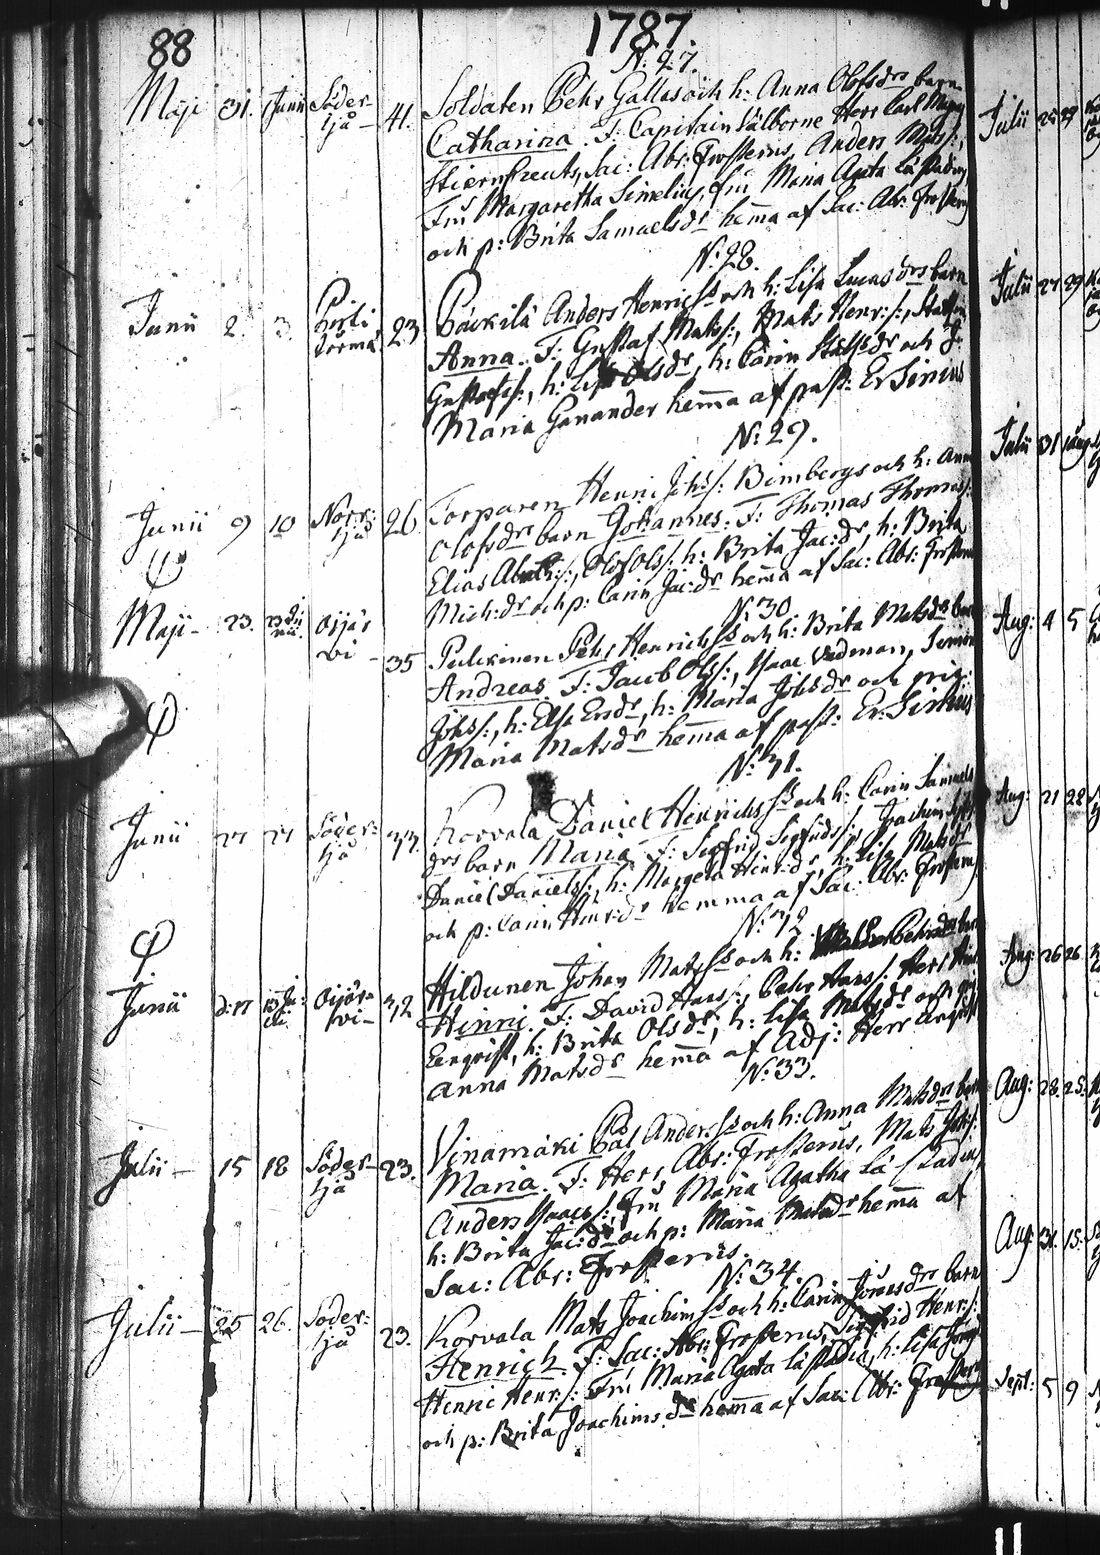 88
1787.
N: 27.
Maji 31. 1 Junii Söder-
tjå - 41.
Soldaten Pehr Gallas och h: Anna Olofsdrs barn
Catharina. F: Capitain Välborne Herr Carl Magn:
Stiernkreuts, Sac: Abr: Frosterus, Anders Mats/:,
Fru Margaretha Simelius, fru Maria Agata Læstadius,
och p: Brita Samuelsdr hem̄a af Sac: Abr: Frosterus
N: 28.
Junii 2. 3. 23
Bäckilä Anders Henricss och h: Lisa Lucasdrs barn
Anna. F: Gustaf Mats/:, Mats Henr:/:, Staffan
Gustafs/:, h: Lisa Olsdr, h: Carin Staffsdr och J:
Maria Ganander hem̄a af past: Er Sirius
N: 29.
Junii 9 10 Norr:
tjå 26
Torparen Henric Johs/: Bimbergs och h: Anna
Olofsdr barn Johannes. F: Thomas Thomas/:
Elias Abrah:/:, Olof Ols/:, h: Brita Jac:dr, h: Brita
Mich:dr och p: Carin Jac:dr hem̄a af Sac: Abr: Frosterus
N: 30
Maji - 23. 23 Ju
nii. Oijär
vi - 35
Pulkinen Pehr Henricss och h: Brita Matsdrs barn
Andreas. F: Jacob Ols/:, Isaac Vadman, Simon
Johs/:, h: Elsa Ersdr, h: Maria Johsdr och pig:
Maria Matsdr hem̄a af past: Er: Sirius
N: 31.
Junii 27 27 Söder:
tjå 33.
Korvala Daniel Henricss och h: Carin Samuels
drs barn Maria. F: Sigfrid Sigfrids/:, Joachim
Daniel Daniels/:, h: Margeta Henr:dr, h: Lisa Matsdr
och p: Carin Henr:dr hemma af Sac: Abr: Frosterus
N: 32
Junii d: 17 Oijär-
vi - 32
Hildunen Johan Matsss och h: Pehrsdrs barn
Henric. F: David Hans/:, Pehr Hans/: Herr
Enqvist, h: Brita Olsdr, h: Lisa Matsdr och pig
Anna Matsdr hem̄a af Adj: Herr Enqvist
N: 33.
Julii - 15 18 Söder-
tjå 23.
Vinamäki Pål Anderss och h: Anna Matsdrs barn
Maria. F: Herr Abr: Frosterus, Mats Johs/:
Anders Isaacs/:, fru Maria Agatha Læstadius
h: Brita Jac:dr och p: Maria Matsdr hem̄a af
Sac: Abr: Frosterus.
N: 34.
Julii - 25 26. Söder:
tjå 23.
Korvala Mats Joachimss och h: Carin Jönsdrs barn
Henrich. F: Sac: Abr: Frosterus, Sigfrid Henr:/:
Henric Henr:/: Fru Maria Agata Læstadia, h: Lisa
och p: Brita Joachimsdr hem̄a af Sac: Abr: Frosterus
Julii 25 27
Julii 27 29
Julii 31
Aug: 4 5
Aug: 21 22
Aug: 26 26
Aug: 23. 25.
Aug: 31. 15.
Sept: 5 9